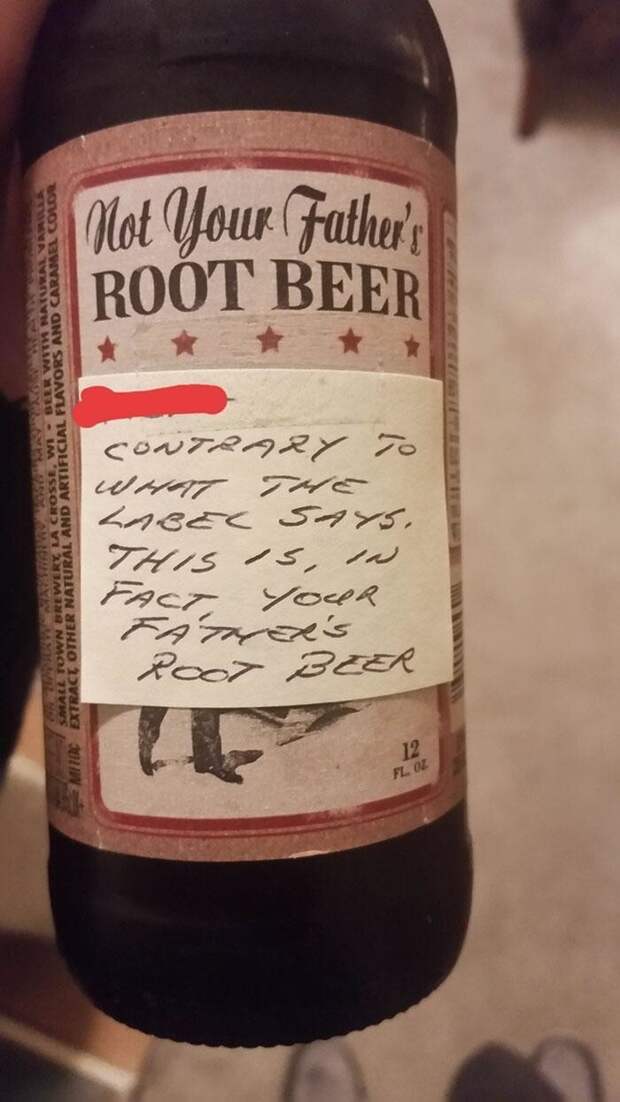 Not Your Father's
ROOT BEER
CONTRARY TO
WHAT THE
LABEL SAYS.
THIS IS, IN
FACT, YOUR
FATHER'S
ROOT BEER
12
FL. OZ.
SMALL TOWN BREWERY, LA CROSSE, WI • BEER WITH NATURAL VANILLA
EXTRACT, OTHER NATURAL AND ARTIFICIAL FLAVORS AND CARAMEL COLOR